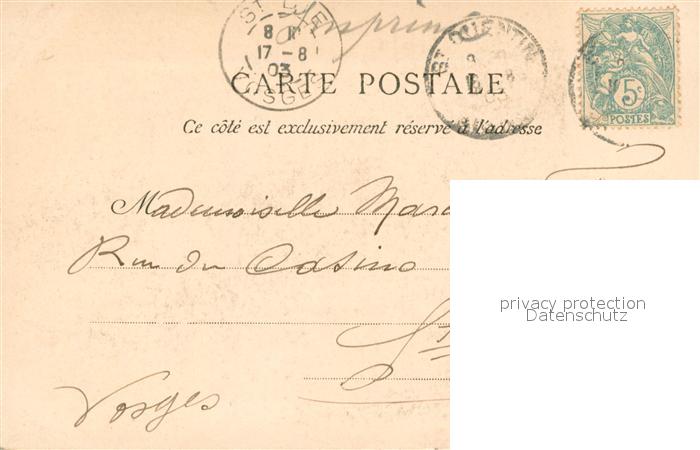 Imprimé
ST DIÉ
8
17 - 8
03
VOSGES
ST QUENTIN
5c
POSTES
CARTE POSTALE
Ce côté est exclusivement réservé à l'adresse
Mademoiselle
Rue du Casino
St
Vosges
privacy protection
Datenschutz